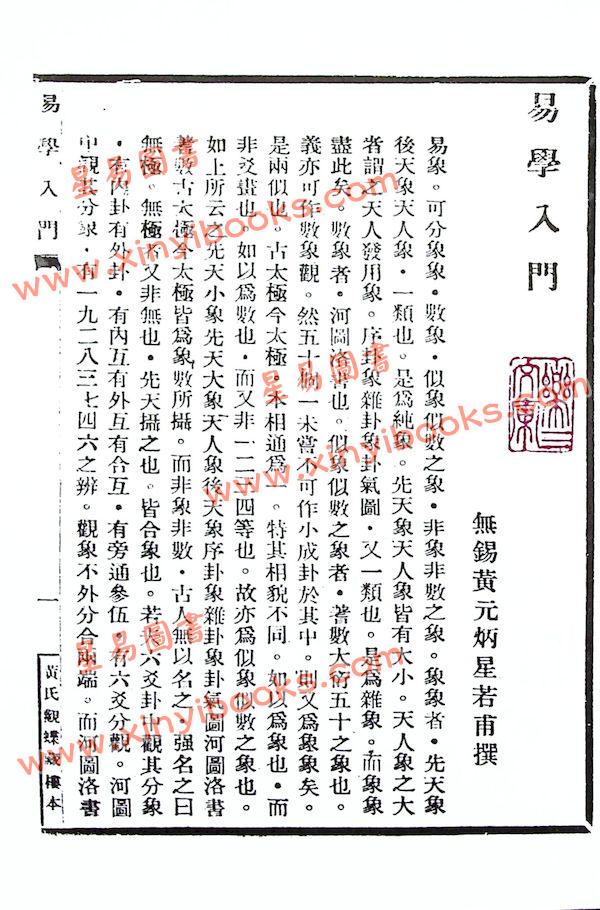 易學入門
無錫黃元炳星若甫撰
易象。可分象象。數象。似象似數之象。非象非數之象。象象者。先天象
後天象天人象。一類也。是為純象。先天象天人象皆有大小。天人象之大
者謂之天人發用象。序卦象雜卦象卦氣圖。又一類也。是為雜象。而象象
盡此矣。數象者。河圖洛書也。似象似數之象者。蓍數大衍五十之象也。
義亦可作數象觀。然五十側一未嘗不可作小成卦於其中。則又為象象矣。
是兩似也。古太極今太極。未相通為一。特其相貌不同。如以為象也。而
非爻畫也。如以為數也。而又非一二三四等也。故亦為似象似數之象也。
如上所云之先天小象先天大象天人象後天象序卦象雜卦象卦氣圖河圖洛書
蓍數古太極今太極皆為象數所攝。而非象非數。古人無以名之。強名之曰
無極。無極者又非無也。先天攝之也。皆合象也。若夫六爻卦中觀其分象
。有內卦有外卦。有內互有外互有合互。有旁通參伍。有六爻分觀。河圖
中觀其分象。有一九二八三七四六之辨。觀象不外分合兩端。而河圖洛書
易學入門
一
黃氏觀蝶樓本
星易圖書
www.xinyibooks.com
星易圖書
www.xinyibooks.com
星易圖書
www.xinyibooks.com